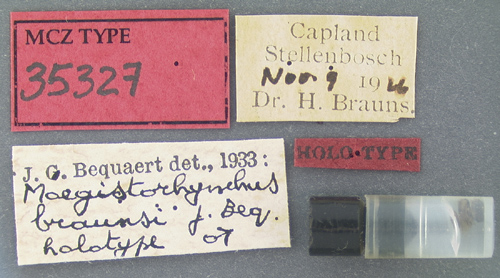 MCZ TYPE
35327
Capland
Stellenbosch
Nov. 9 19
Dr. H. Brauns.
HOLO-TYPE
J. C. Bequaert det., 1933:
Moegistorhynchus
braunsi J. Beq.
holotype ♂